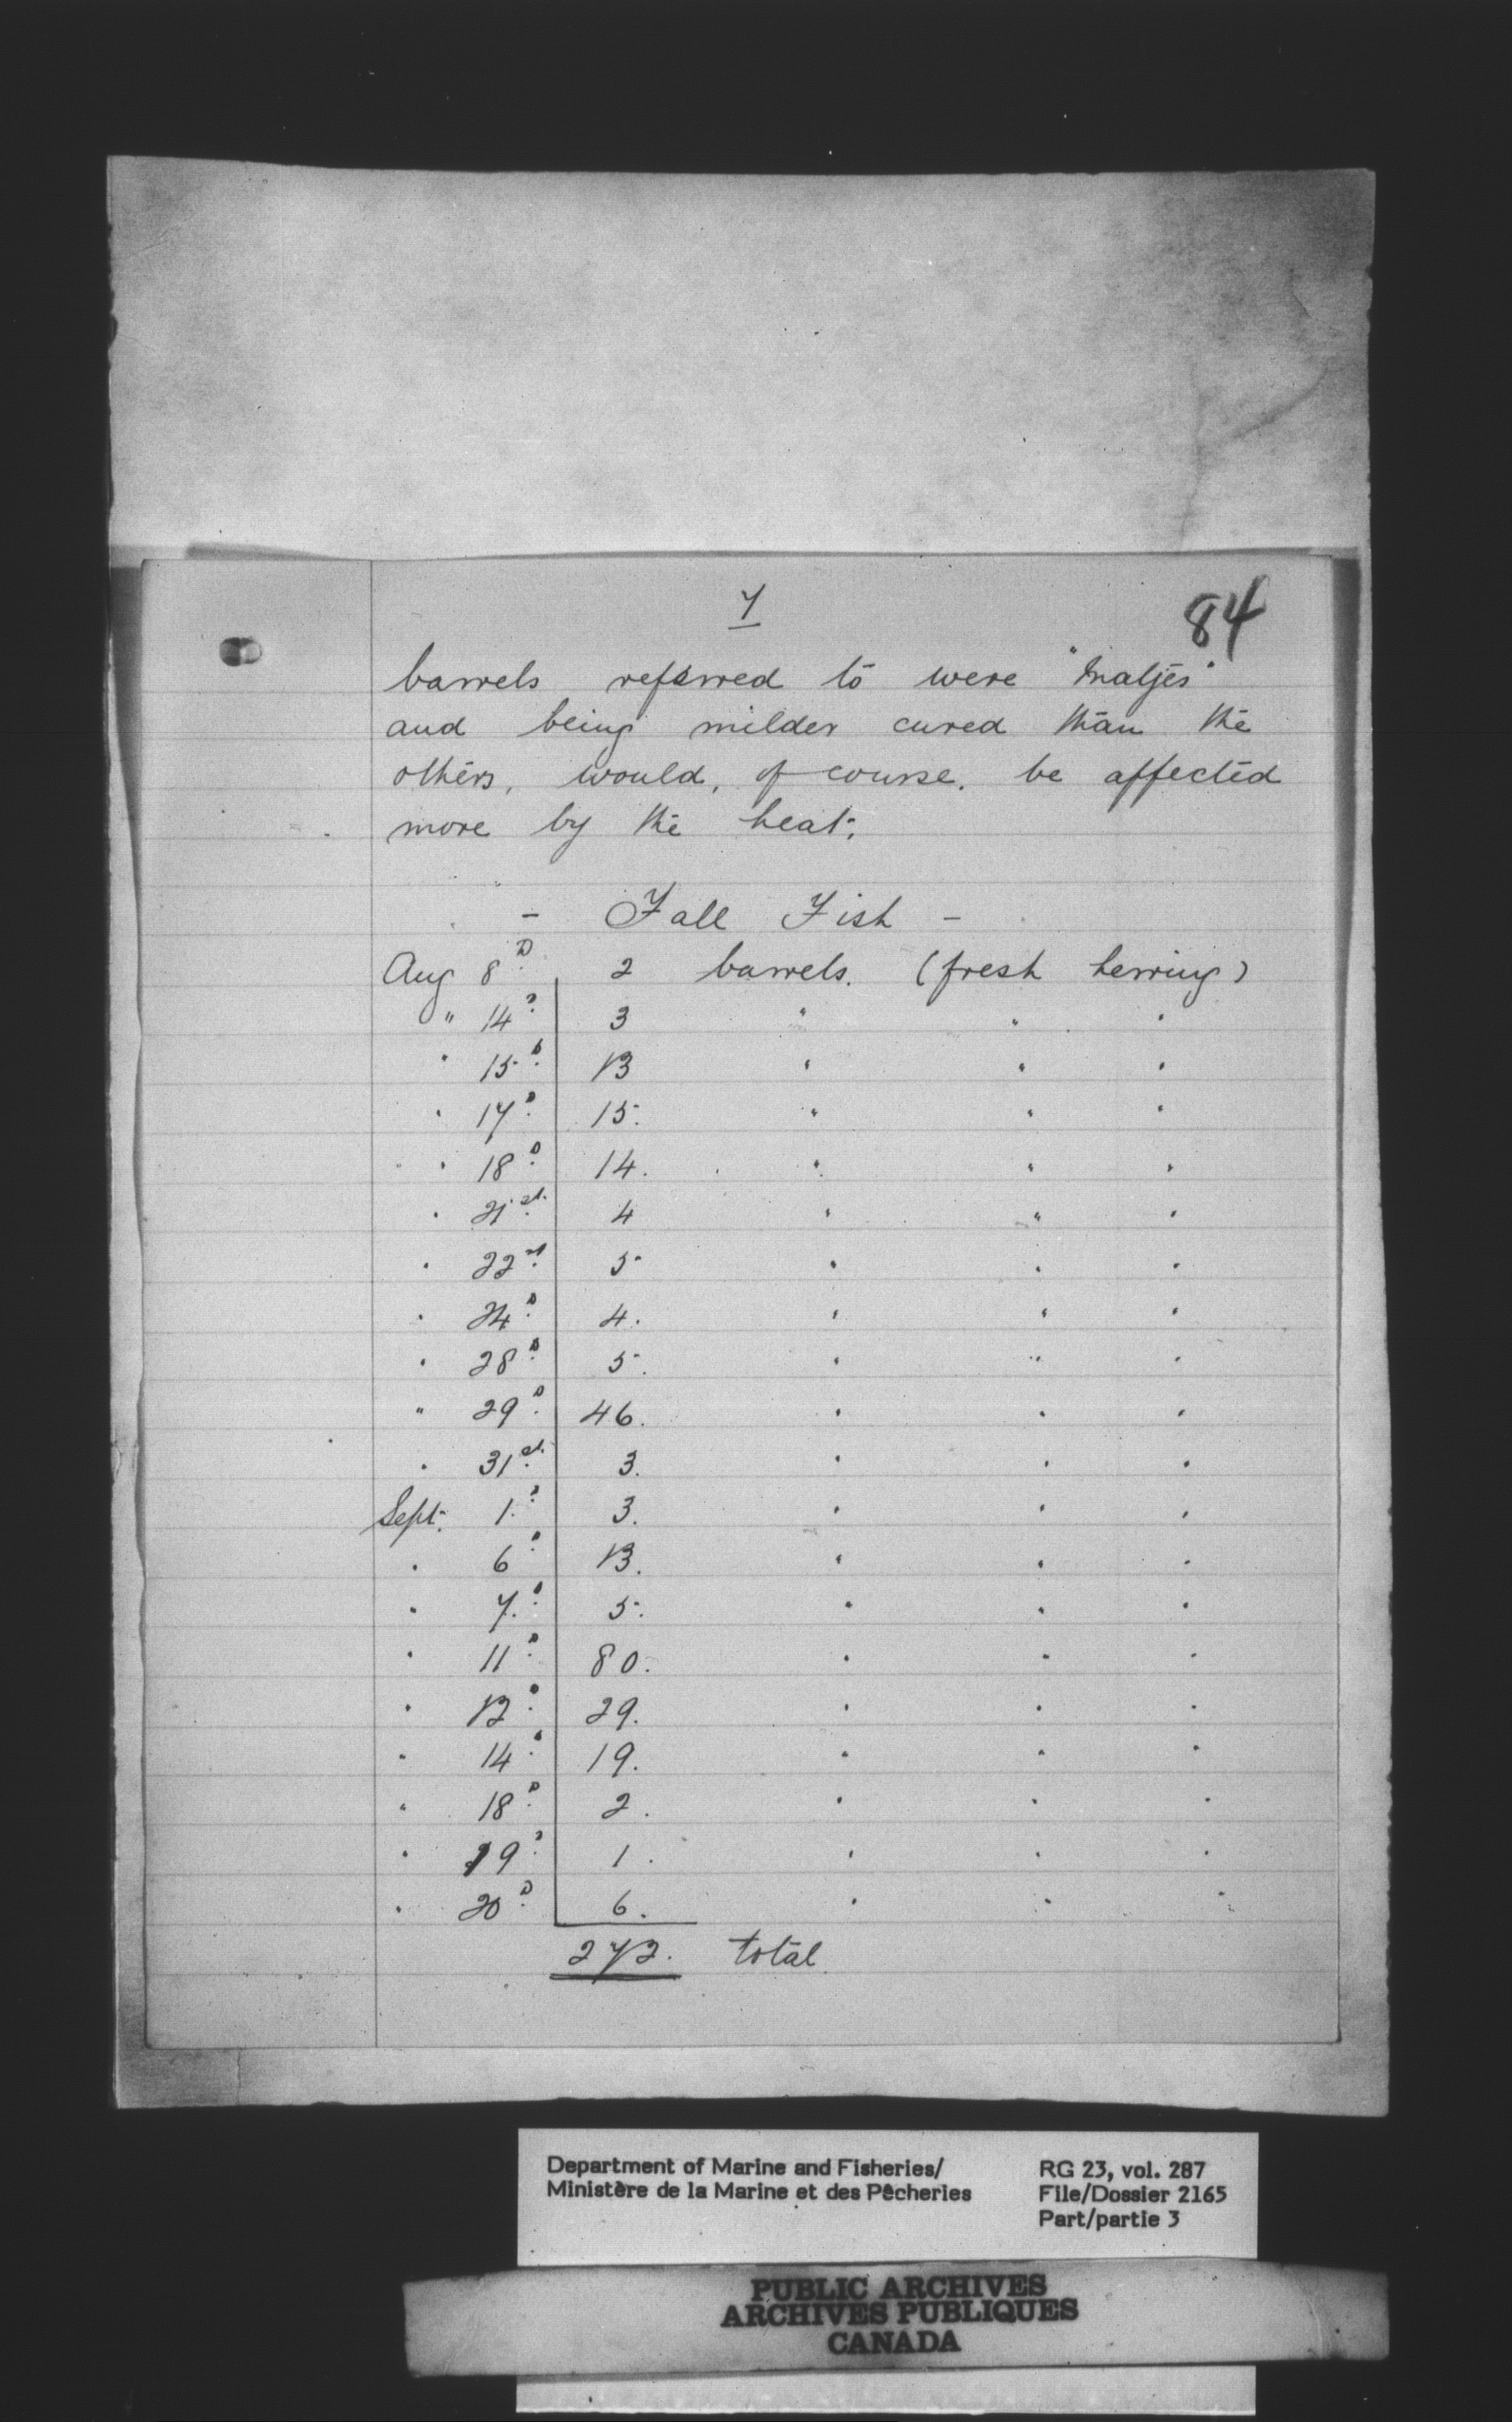 7
84
barrels referred to were "Matjes"
and being milder cured than the
others, would, of course, be affected
more by the heat.
- Fall Fish -
Aug 8th 2 barrels. (fresh herring)
" 14th 3 " " "
" 15th 13 " " "
" 17th 15. " " "
" 18th 14. " " "
" 21st 4 " " "
" 22nd 5 " " "
" 24th 4. " " "
" 28th 5. " " "
" 29th 46. " " "
" 31st 3. " " "
Sept. 1st 3. " " "
" 6th 13. " " "
" 7th 5. " " "
" 11th 80. " " "
" 12th 29. " " "
" 14th 19. " " "
" 18th 2. " " "
" 19th 1. " " "
" 20th 6. " " "
272. total
Department of Marine and Fisheries/ RG 23, vol. 287
Ministère de la Marine et des Pêcheries File/Dossier 2165
Part/partie 3
PUBLIC ARCHIVES
ARCHIVES PUBLIQUES
CANADA